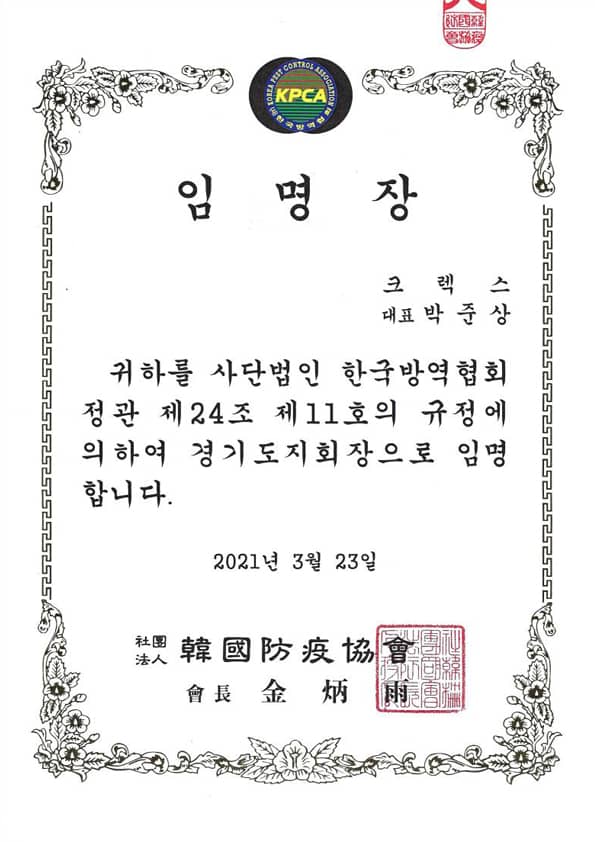 KOREA PEST CONTROL ASSOCIATION
KPCA
(사)한국방역협회
임 명 장
크 렉 스
대표 박 준 상
귀하를 사단법인 한국방역협회
정관 제24조 제11호의 규정에
의하여 경기도지회장으로 임명
합니다.
2021년 3월 23일
社團
法人 韓國防疫協會
會長 金炳雨